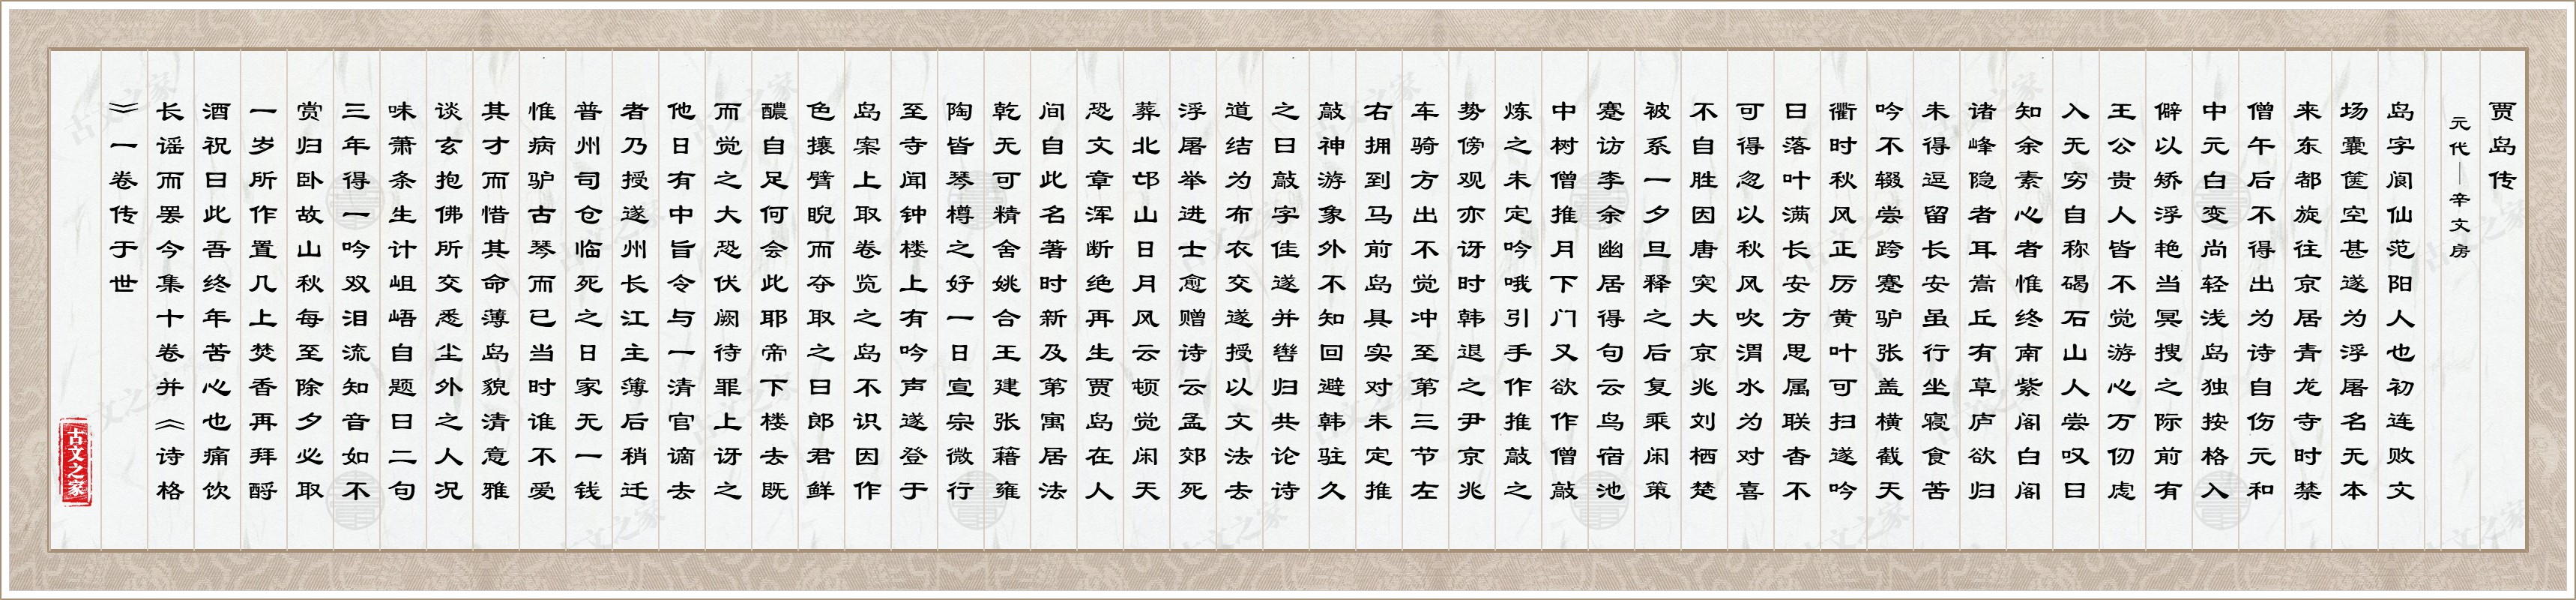 贾岛传
元代—辛文房
岛字阆仙范阳人也初连败文
场囊箧空甚遂为浮屠名无本
来东都旋往京居青龙寺时禁
僧午后不得出为诗自伤元和
中元白变尚轻浅岛独按格入
僻以矫浮艳当冥搜之际前有
王公贵人皆不觉游心万仞虑
入无穷自称碣石山人尝叹曰
知余素心者惟终南紫阁白阁
诸峰隐者耳嵩丘有草庐欲归
未得逗留长安虽行坐寝食苦
吟不辍尝跨蹇驴张盖横截天
衢时秋风正厉黄叶可扫遂吟
曰落叶满长安方思属联杳不
可得忽以秋风吹渭水为对喜
不自胜因唐突大京兆刘栖楚
被系一夕旦释之后复乘闲策
蹇访李余幽居得句云鸟宿池
中树僧推月下门又欲作僧敲
炼之未定吟哦引手作推敲之
势傍观亦讶时韩退之尹京兆
车骑方出不觉冲至第三节左
右拥到马前岛具实对未定推
敲神游象外不知回避韩驻久
之曰敲字佳遂并辔归共论诗
道结为布衣交遂授以文法去
浮屠举进士愈赠诗云孟郊死
葬北邙山日月风云顿觉闲天
恐文章浑断绝再生贾岛在人
间自此名著时新及第寓居法
乾无可精舍姚合王建张籍雍
陶皆琴樽之好一日宣宗微行
至寺闻钟楼上有吟声遂登于
岛案上取卷览之岛不识因作
色攘臂睨而夺取之曰郎君鲜
醲自足何会此耶帝下楼去既
而觉之大恐伏阙待罪上讶之
他日有中旨令与一清官谪去
者乃授遂州长江主薄后稍迁
普州司仓临死之日家无一钱
惟病驴古琴而已当时谁不爱
其才而惜其命薄岛貌清意雅
谈玄抱佛所交悉尘外之人况
味萧条生计岨峿自题曰二句
三年得一吟双泪流知音如不
赏归卧故山秋每至除夕必取
一岁所作置几上焚香再拜酹
酒祝曰此吾终年苦心也痛饮
长谣而罢今集十卷并《诗格
》一卷传于世
古文之家